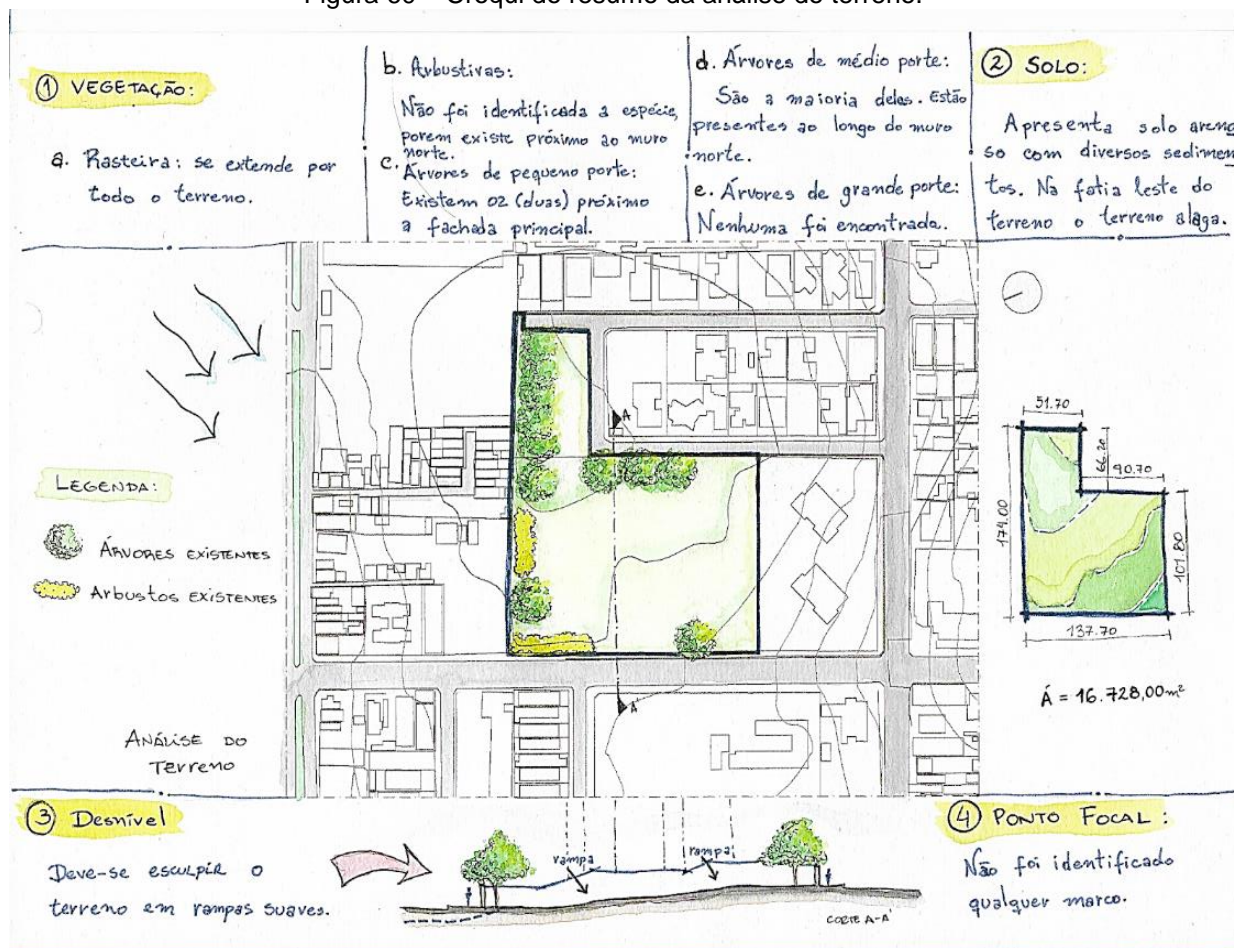 ① VEGETAÇÃO:
a. Rasteira: se extende por
todo o terreno.
b. Arbustivas:
Não foi identificada a espécie,
porem existe próximo ao muro
norte.
c. Árvores de pequeno porte:
Existem 02 (duas) próximo
a fachada principal.
d. Árvores de médio porte:
São a maioria delas. Estão
presentes ao longo do muro
norte.
e. Árvores de grande porte:
Nenhuma foi encontrada.
② SOLO:
Apresenta solo areno
so com diversos sedimen
tos. Na fatia leste do
terreno o terreno alaga.
A
A'
LEGENDA:
ÁRVORES EXISTENTES
Arbustos EXISTENTES
ANÁLISE DO
TERRENO
51.70
66.20
90.70
174.00
101.80
137.70
Á = 16.728,00m²
③ Desnível
Deve-se esculpir o
terreno em rampas suaves.
rampa
rampa
CORTE A-A'
④ PONTO FOCAL:
Não foi identificado
qualquer marco.